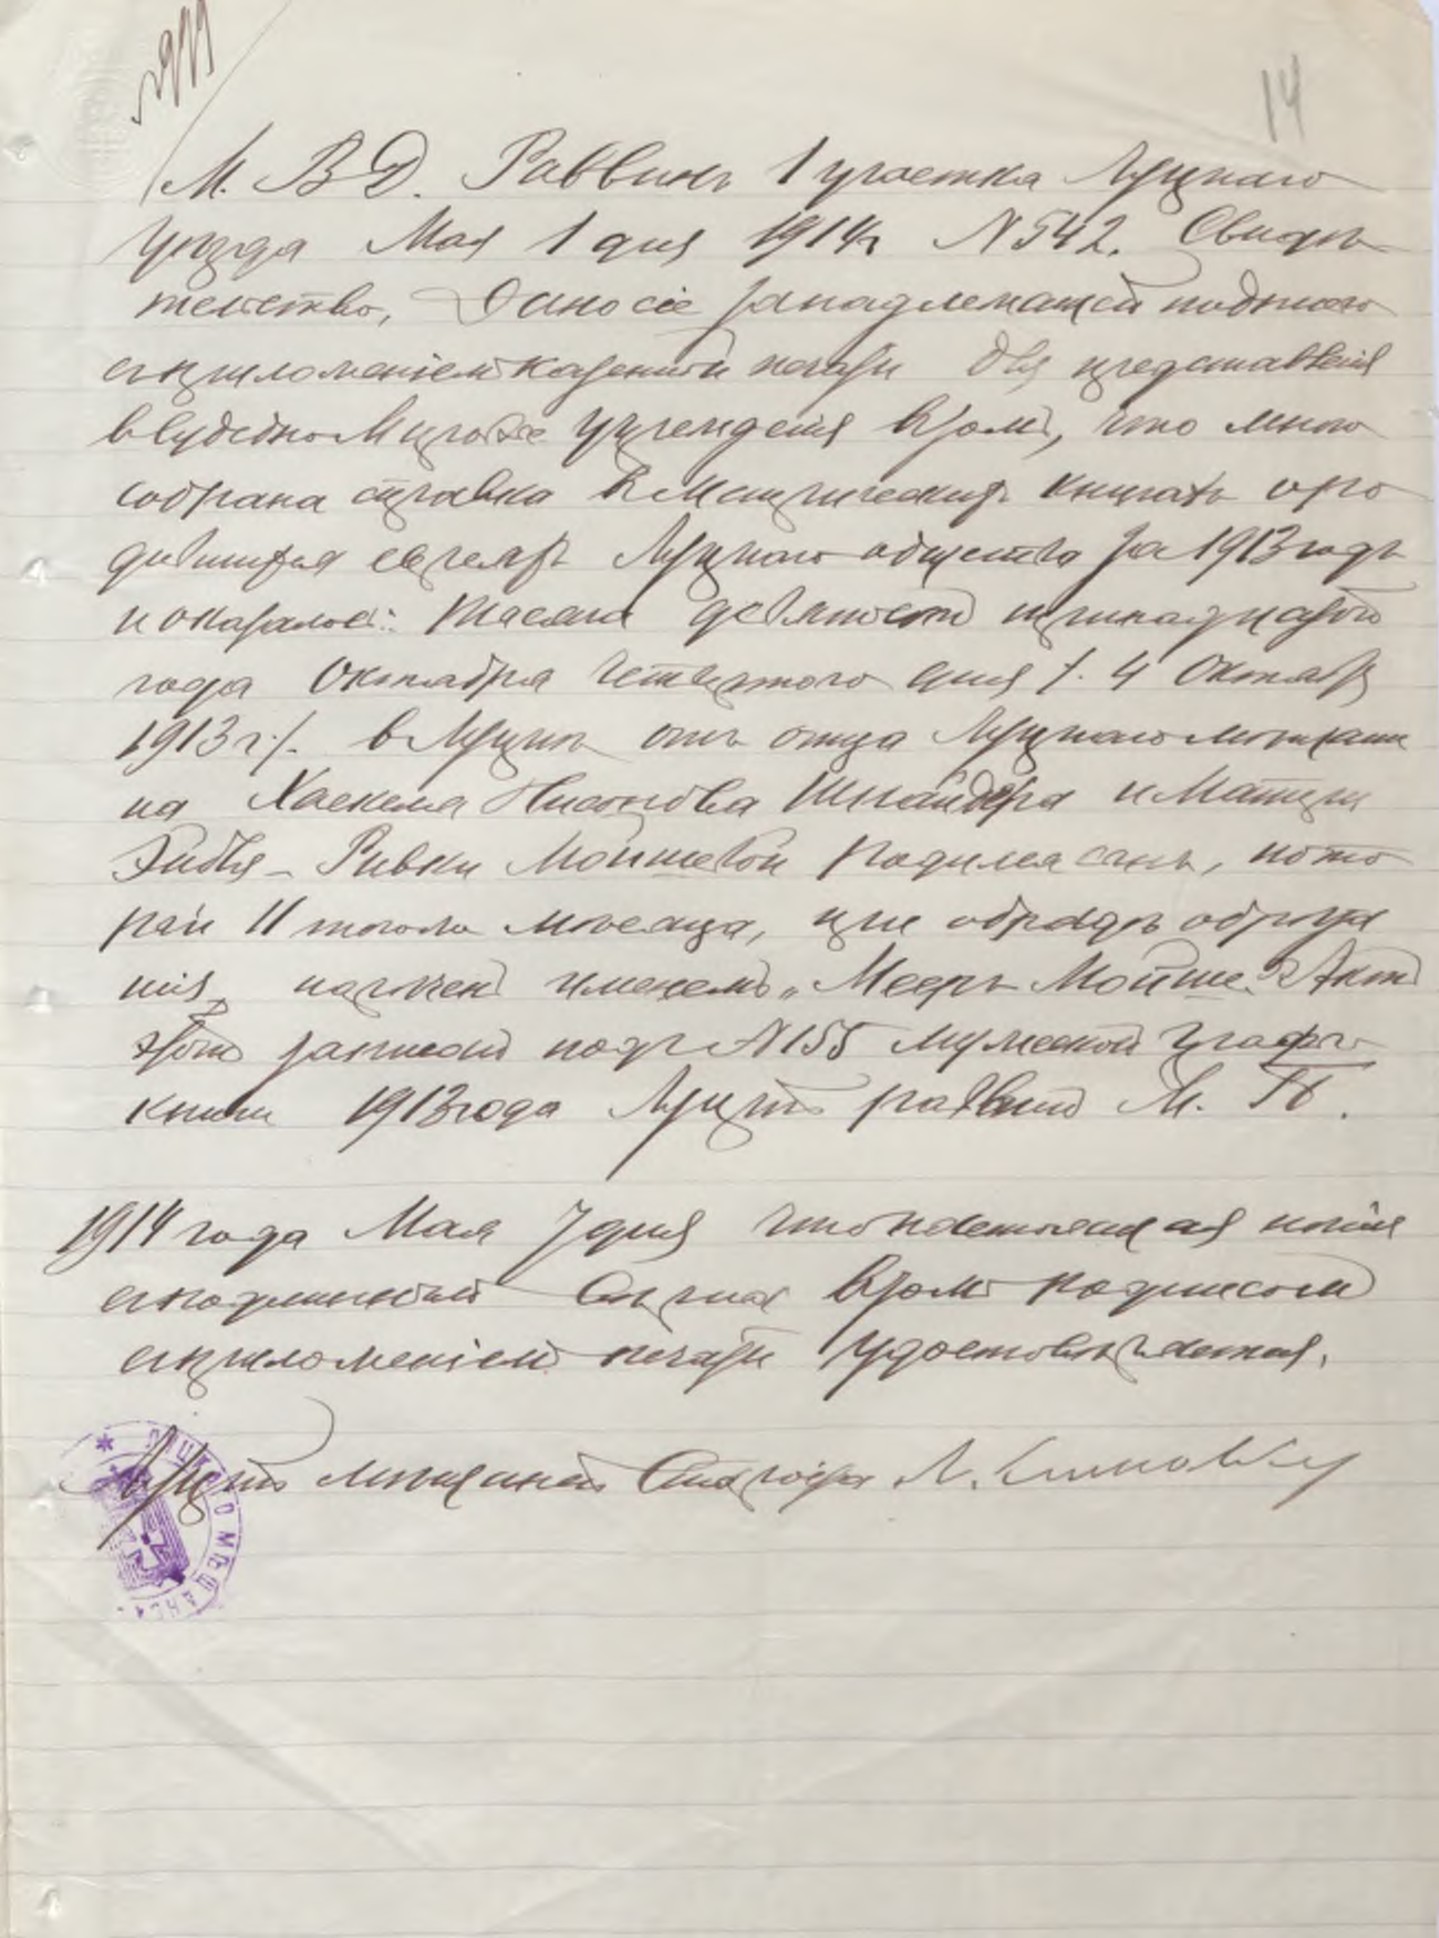 14
М. В. Д. Раввинъ 1 участка Луцкаго
уѣзда Мая 1 дня 1914 г. N 542. Свидѣ
тельство, Дано сіе за надлежащей подписью
съ приложеніемъ казенной печати для представленія
въ учрежденія въ томъ, что мною
собрана справка въ метрическихъ книгахъ о ро
дившихся евреяхъ Луцкаго общества за 1913 годъ
и оказалось: Тысяча девятьсотъ тринадцатого
года Октября четвертого дня /. 4 Октября
1913 г. /. въ Луцкѣ отъ отца Луцкаго мѣщани
на Хаскеля Шнайдера и матери
Ривки родился сынъ, кото
рый 11 того мѣсяца, при обрядѣ обрѣза
нія, нареченъ именемъ „Мееръ Мойше". Актъ
этотъ записанъ подъ N 155 мужской графы
книги 1913 года Луцкій раввинъ М. П.
1914 года Мая 7 дня что настоящая копія
съ подлинной вѣрна въ томъ подписомъ
съ приложеніемъ печати удостовѣряется.
Луцкій мѣщанскій Староста